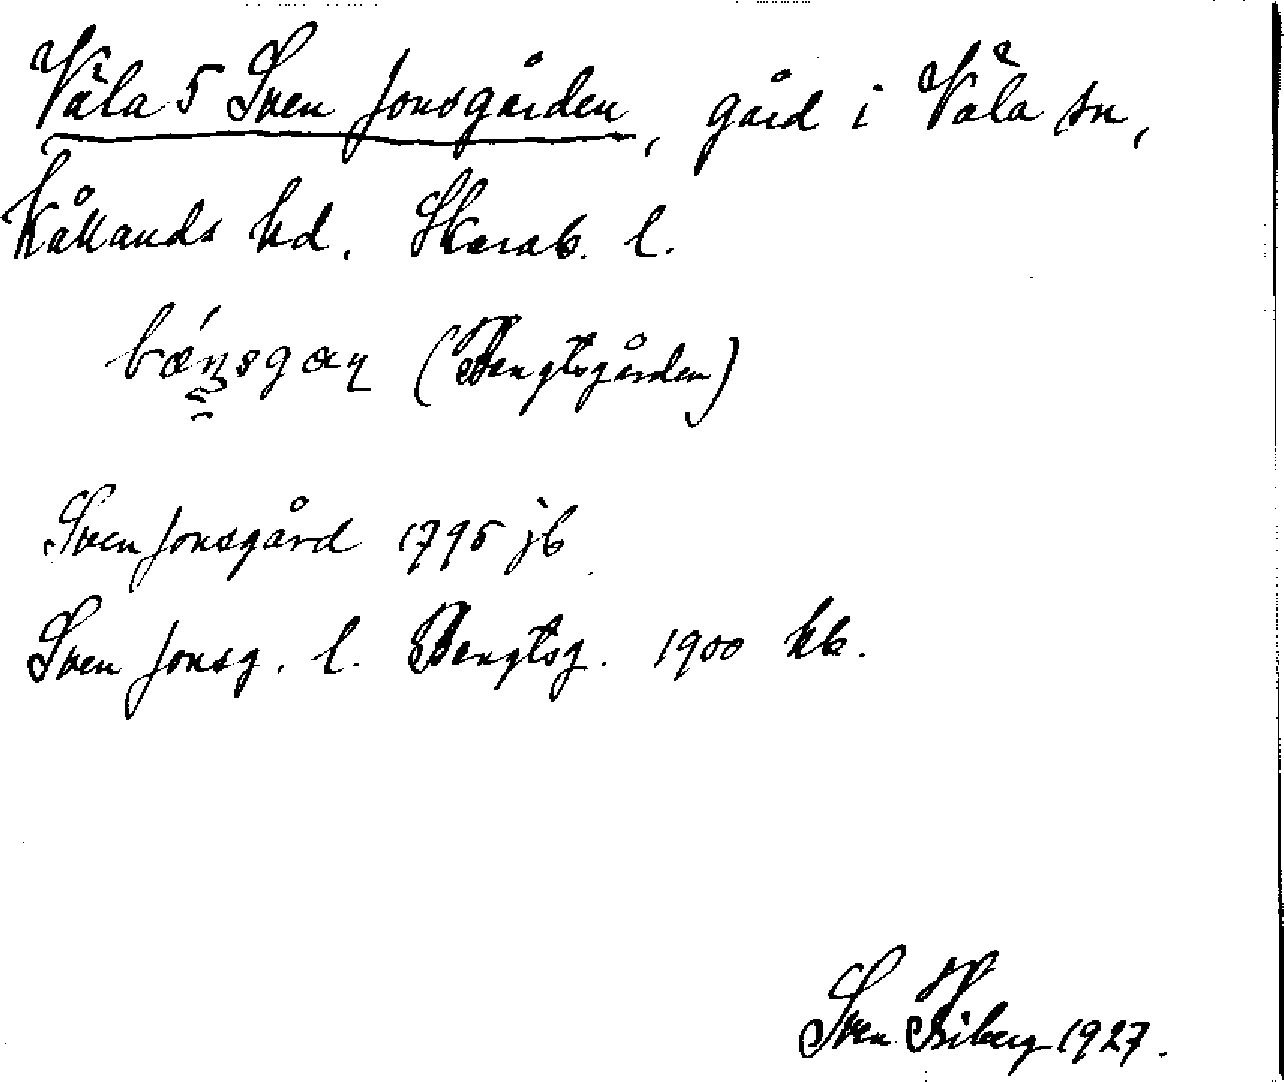 Väla 5 Sven Jonsgården, gård i Väla sn,
Kållands hd. Skarab. l.
(Bengtsgården)
Sven Jonsgård 1795 jb
Sven Jonsg. l. Bengtsg. 1900 kb.
Sven 1927.